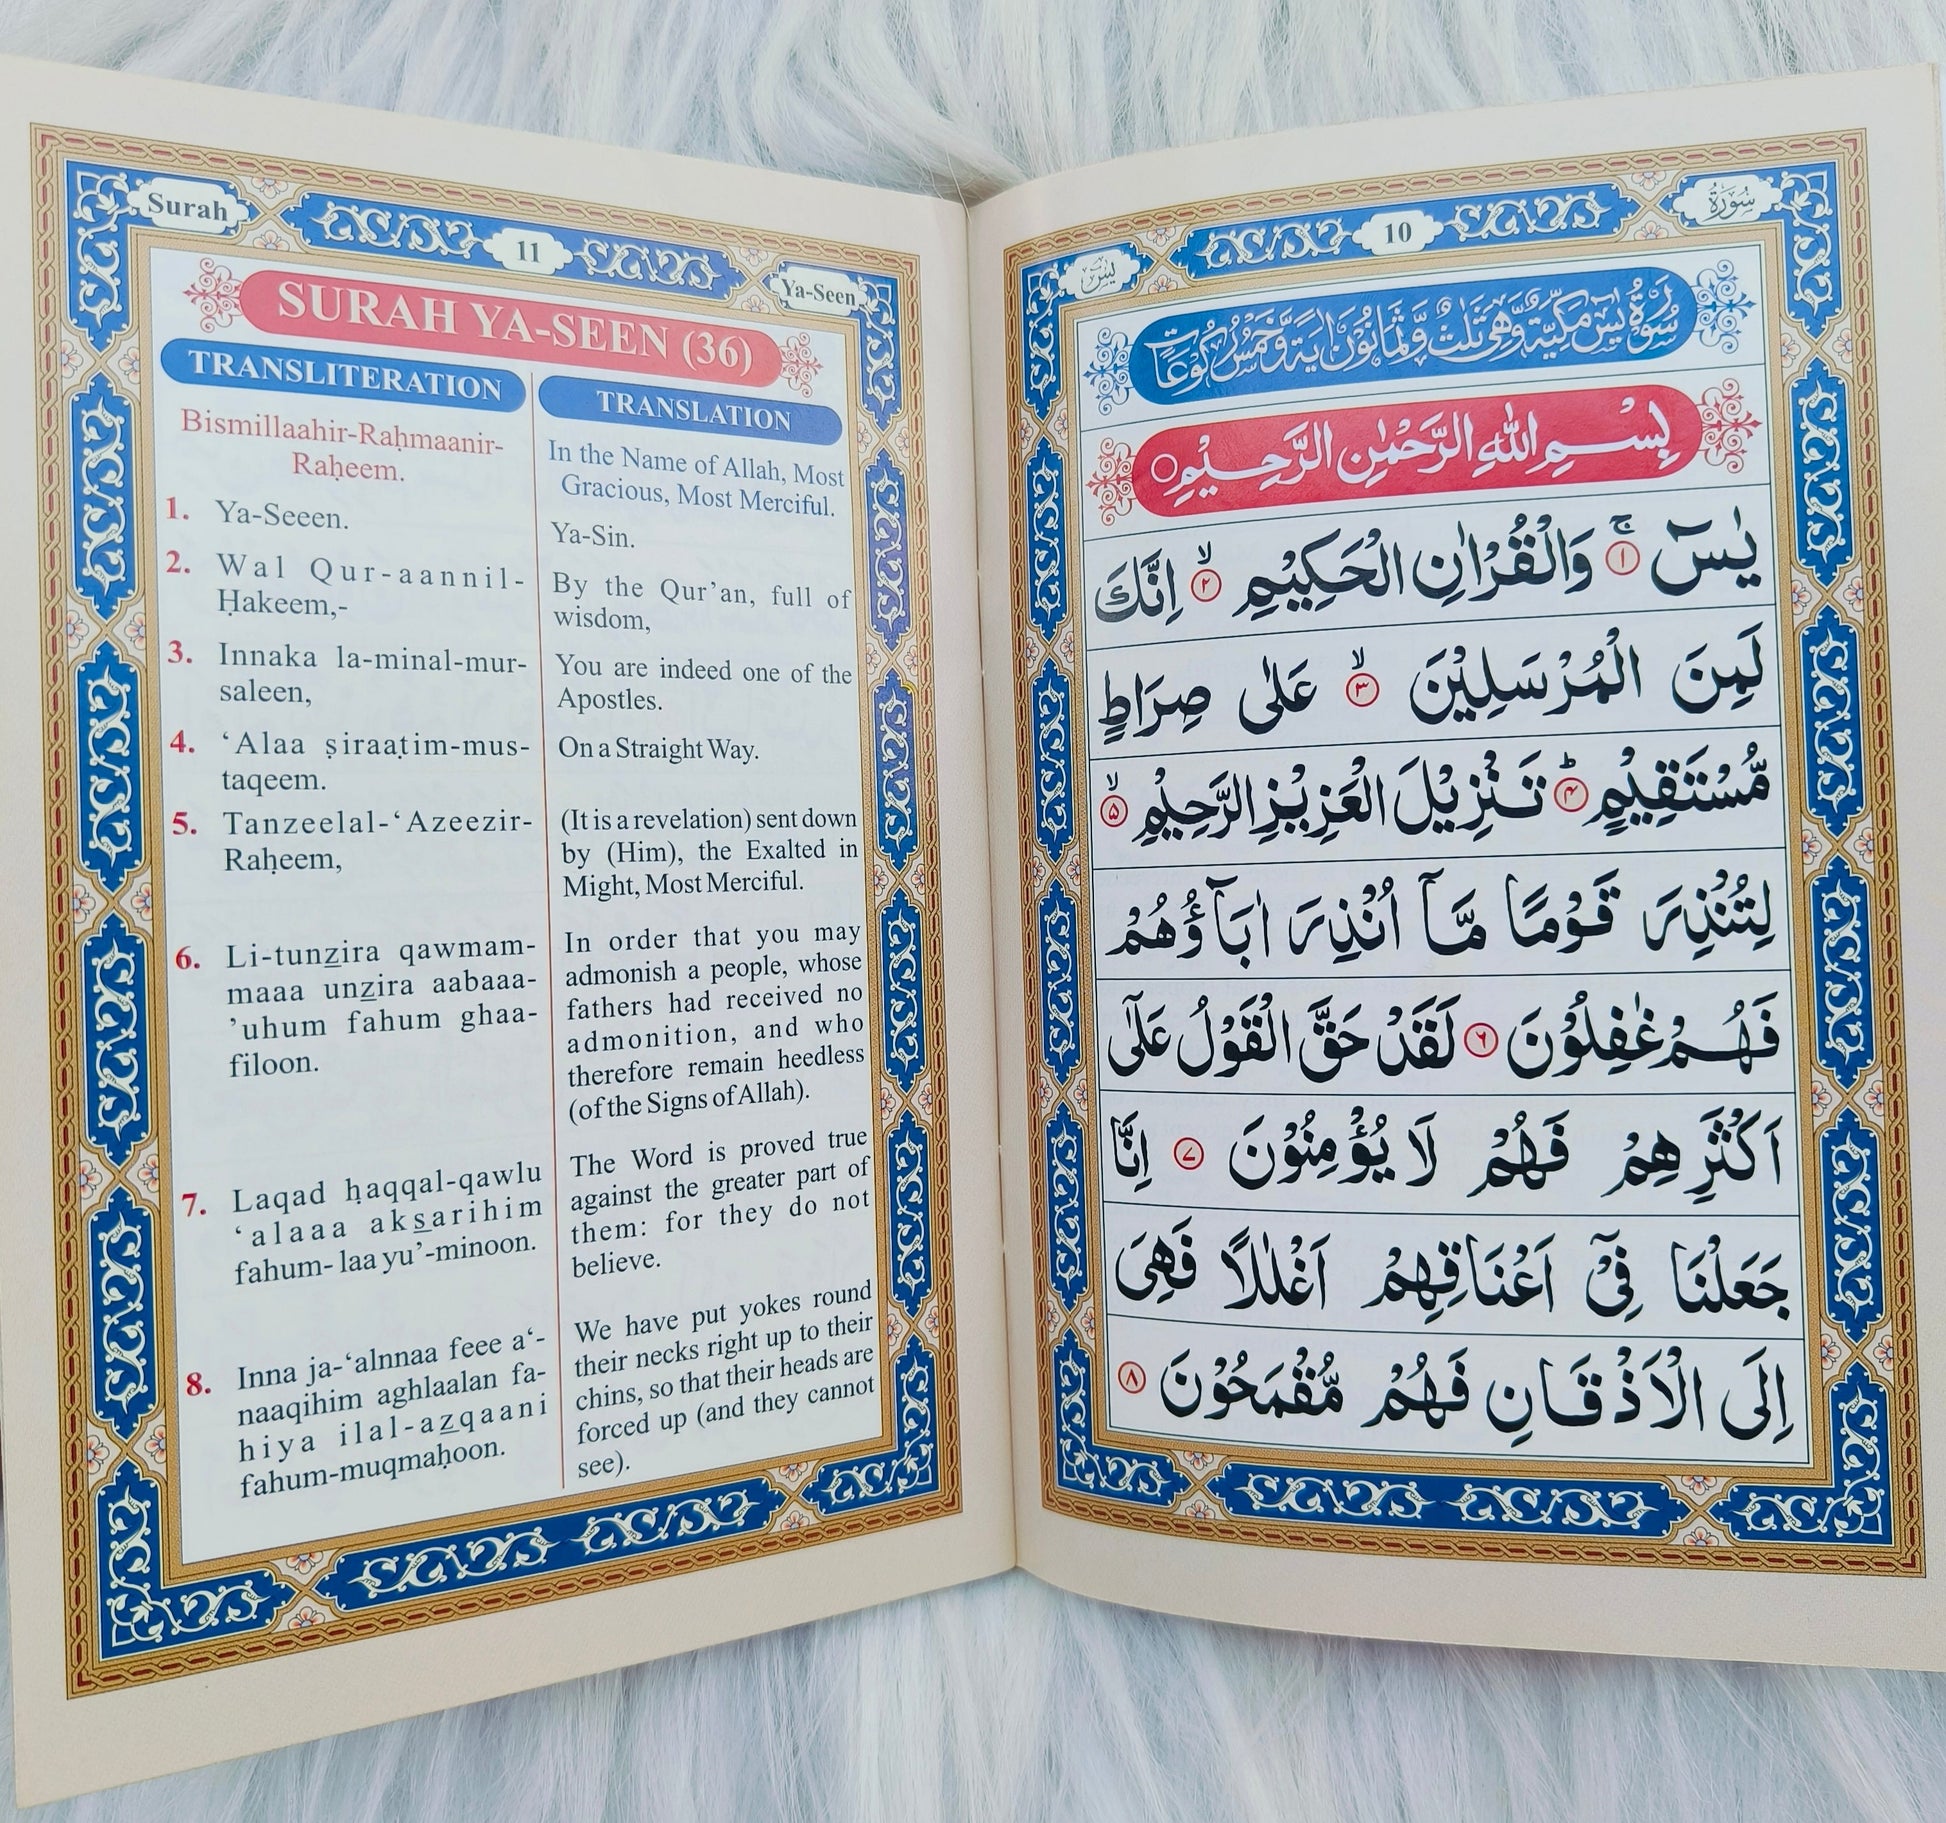 Surah
11
Ya-Seen
SURAH YA-SEEN (36)
TRANSLITERATION
Bismillaahir-Raḥmaanir-
Raḥeem.
1. Ya-Seeen.
2. Wal Qur-aannil-
Ḥakeem,-
3. Innaka la-minal-mur-
saleen,
4. ‘Alaa ṣiraaṭim-mus-
taqeem.
5. Tanzeelal-‘Azeezir-
Raḥeem,
6. Li-tunz̲ira qawmam-
maaa unz̲ira aabaaa-
’uhum fahum ghaa-
filoon.
7. Laqad ḥaqqal-qawlu
‘alaaa aks̲arihim
fahum- laa yu’-minoon.
8. Inna ja-‘alnnaa feee a‘-
naaqihim aghlaalan fa-
hiya ilal-az̲qaani
fahum-muqmaḥoon.
TRANSLATION
In the Name of Allah, Most
Gracious, Most Merciful.
Ya-Sin.
By the Qur’an, full of
wisdom,
You are indeed one of the
Apostles.
On a Straight Way.
(It is a revelation) sent down
by (Him), the Exalted in
Might, Most Merciful.
In order that you may
admonish a people, whose
fathers had received no
admonition, and who
therefore remain heedless
(of the Signs of Allah).
The Word is proved true
against the greater part of
them: for they do not
believe.
We have put yokes round
their necks right up to their
chins, so that their heads are
forced up (and they cannot
see).
سُوْرَة
10
يٰسٓ
سُوْرَةُ يٰسٓ مَكِّيَّةٌ وَّهِىَ ثَلٰثٌ وَّثَمَانُوْنَ اٰيَةً وَّخَمْسُ رُكُوْعَاتٍ
بِسْمِ اللّٰهِ الرَّحْمٰنِ الرَّحِيْمِ ○
يٰسٓ ۚ ۱ وَالْقُرْاٰنِ الْحَكِيْمِ ۙ ۲ اِنَّكَ
لَمِنَ الْمُرْسَلِيْنَ ۙ ۳ عَلٰى صِرَاطٍ
مُّسْتَقِيْمٍ ؕ ۴ تَنْزِيْلَ الْعَزِيْزِ الرَّحِيْمِ ۙ ۵
لِتُنْذِرَ قَوْمًا مَّاۤ اُنْذِرَ اٰبَآؤُهُمْ
فَهُمْ غٰفِلُوْنَ ۶ لَقَدْ حَقَّ الْقَوْلُ عَلٰٓى
اَكْثَرِهِمْ فَهُمْ لَا يُؤْمِنُوْنَ ۷ اِنَّا
جَعَلْنَا فِىْۤ اَعْنَاقِهِمْ اَغْلٰلًا فَهِىَ
اِلَى الْاَذْقَانِ فَهُمْ مُّقْمَحُوْنَ ۸